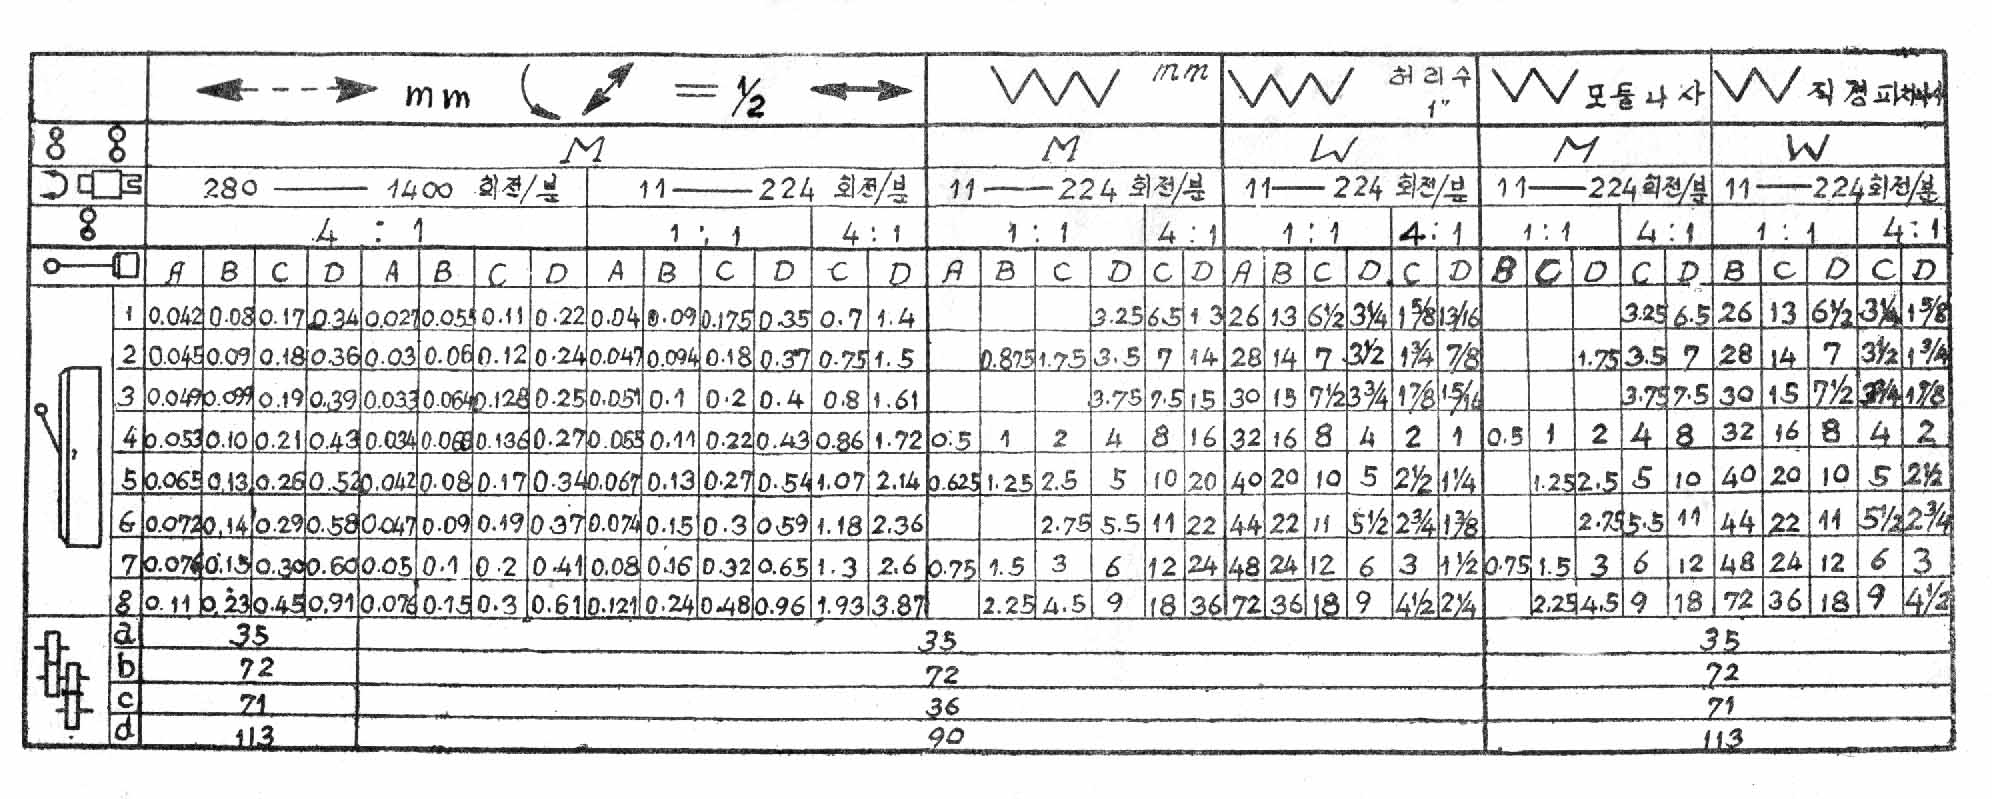 mm = 1/2 mm 허리수 1" 모둘나사 직경피치나사
M M W M W
280 — 1400 회전/분 11 — 224 회전/분 11 — 224 회전/분 11 — 224 회전/분 11 — 224 회전/분 11 — 224 회전/분
4 : 1 1 : 1 4 : 1 1 : 1 4 : 1 1 : 1 4 : 1 1 : 1 4 : 1 1 : 1 4 : 1
A B C D A B C D A B C D C D A B C D C D A B C D C D B C D C D B C D C D
1 0.042 0.08 0.17 0.34 0.027 0.055 0.11 0.22 0.04 0.09 0.175 0.35 0.7 1.4 3.25 6.5 13 26 13 6 1/2 3 1/4 1 5/8 13/16 3.25 6.5 26 13 6 1/2 3 1/4 1 5/8
2 0.045 0.09 0.18 0.36 0.03 0.06 0.12 0.24 0.047 0.094 0.18 0.37 0.75 1.5 0.875 1.75 3.5 7 14 28 14 7 3 1/2 1 3/4 7/8 1.75 3.5 7 28 14 7 3 1/2 1 3/4
3 0.049 0.099 0.19 0.39 0.033 0.064 0.128 0.25 0.051 0.1 0.2 0.4 0.8 1.61 3.75 7.5 15 30 15 7 1/2 3 3/4 1 7/8 15/16 3.75 7.5 30 15 7 1/2 3 3/4 1 7/8
4 0.053 0.10 0.21 0.43 0.034 0.068 0.136 0.27 0.055 0.11 0.22 0.43 0.86 1.72 0.5 1 2 4 8 16 32 16 8 4 2 1 0.5 1 2 4 8 32 16 8 4 2
5 0.065 0.13 0.26 0.52 0.042 0.08 0.17 0.34 0.067 0.13 0.27 0.54 1.07 2.14 0.625 1.25 2.5 5 10 20 40 20 10 5 2 1/2 1 1/4 1.25 2.5 5 10 40 20 10 5 2 1/2
6 0.072 0.14 0.29 0.58 0.047 0.09 0.19 0.37 0.074 0.15 0.3 0.59 1.18 2.36 2.75 5.5 11 22 44 22 11 5 1/2 2 3/4 1 3/8 2.75 5.5 11 44 22 11 5 1/2 2 3/4
7 0.076 0.15 0.30 0.60 0.05 0.1 0.2 0.41 0.08 0.16 0.32 0.65 1.3 2.6 0.75 1.5 3 6 12 24 48 24 12 6 3 1 1/2 0.75 1.5 3 6 12 48 24 12 6 3
8 0.11 0.23 0.45 0.91 0.076 0.15 0.3 0.61 0.121 0.24 0.48 0.96 1.93 3.87 2.25 4.5 9 18 36 72 36 18 9 4 1/2 2 1/4 2.25 4.5 9 18 72 36 18 9 4 1/2
a 35 35 35
b 72 72 72
c 71 36 71
d 113 90 113